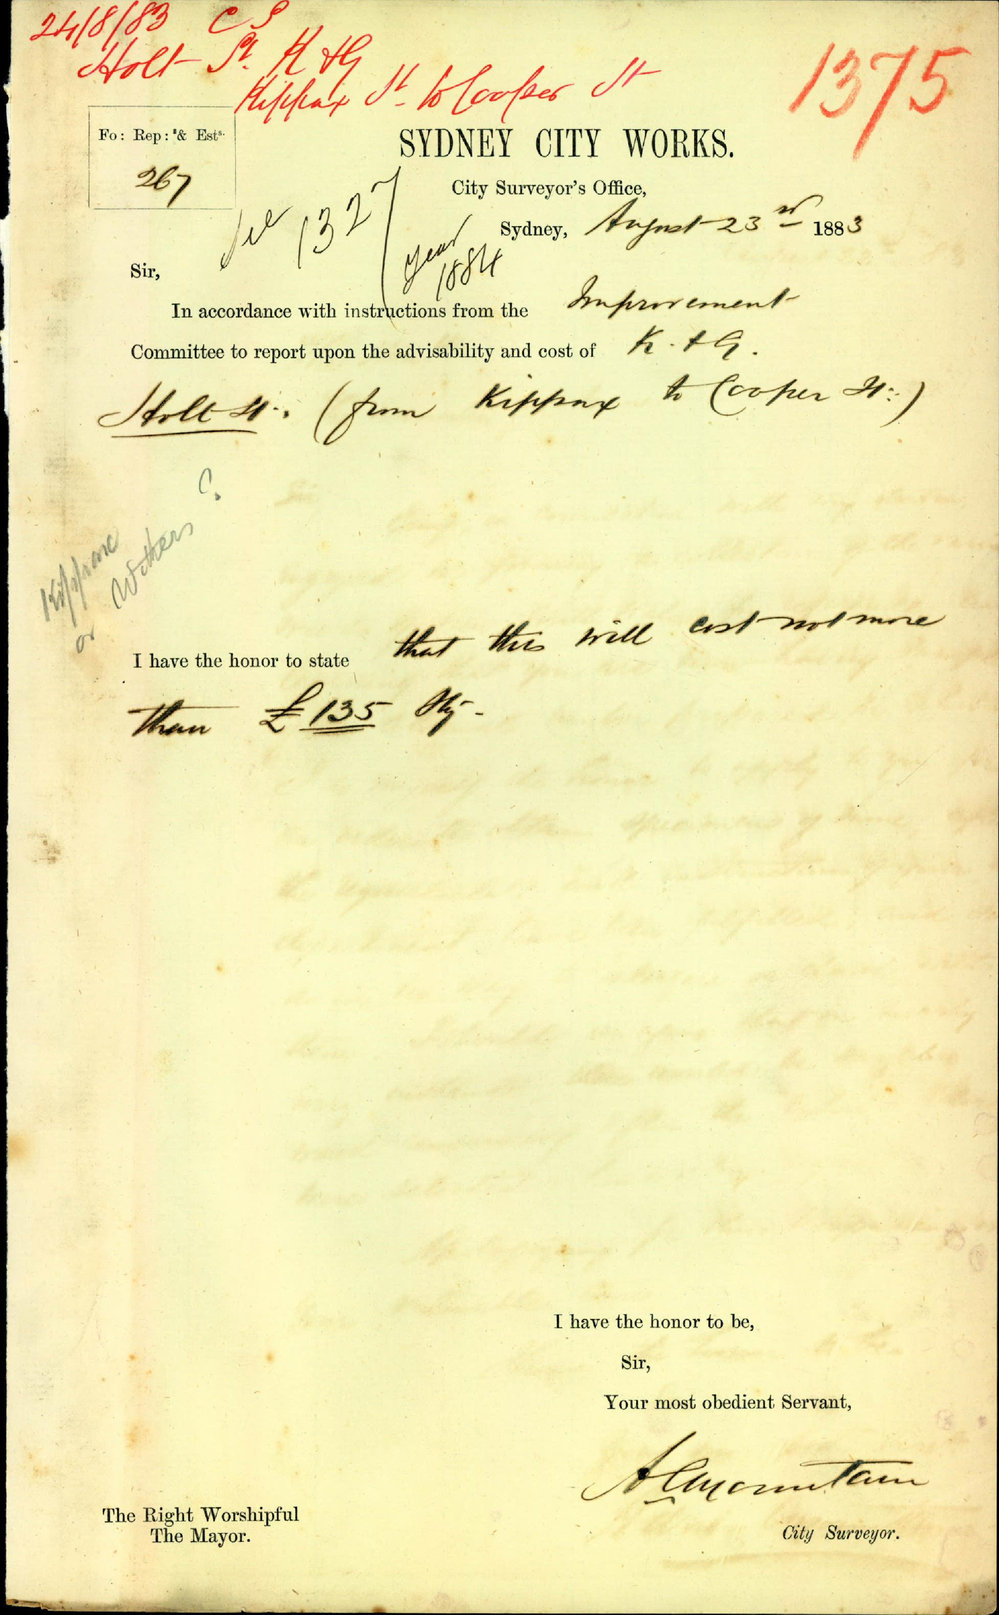 24/8/83 C S
Holt St. K & G
Kippax St. to Cooper St
1375
Fo: Rep: s & Ests.
267
SYDNEY CITY WORKS.
City Surveyor's Office,
See 1327
year
1884
Sydney, August 23rd 1883
Sir,
In accordance with instructions from the Improvement
Committee to report upon the advisability and cost of K. & G.
Holt St. (from Kippax to Cooper St:)
Kippax
or Withers ?
I have the honor to state that this will cost not more
than £135 Stg.
I have the honor to be,
Sir,
Your most obedient Servant,
A C Mountain
City Surveyor.
The Right Worshipful
The Mayor.